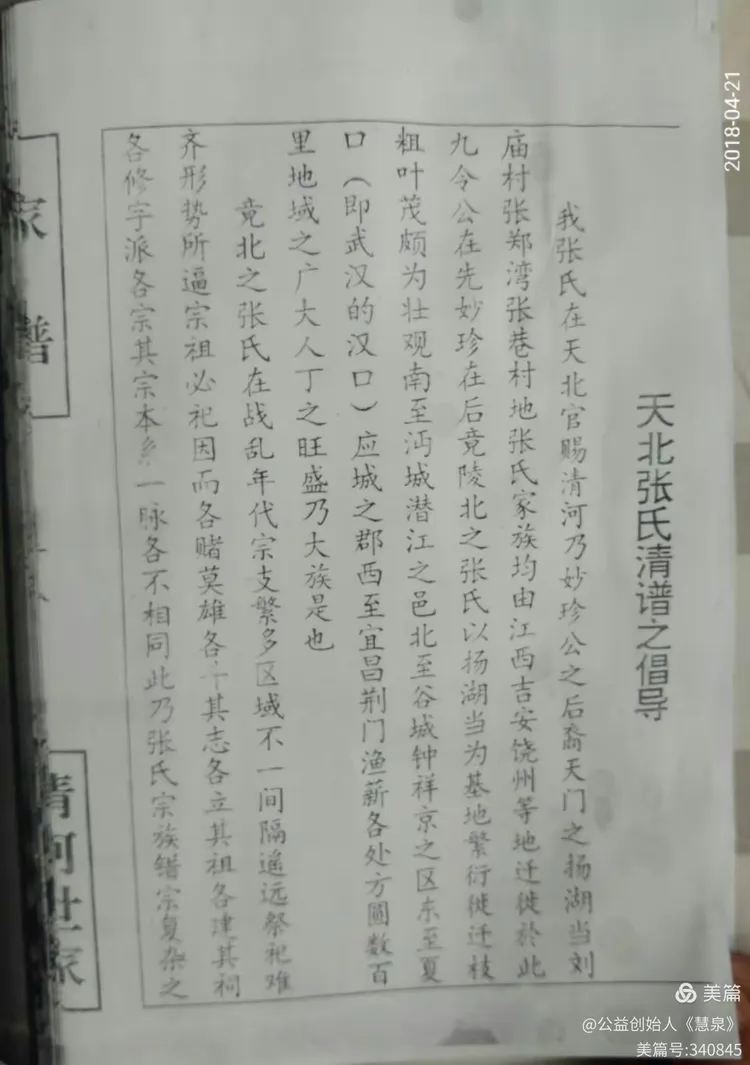 天北张氏清谱之倡导
我张氏在天北官赐清河乃妙珍公之后裔天门之扬湖当刘
庙村张郑湾张巷村地张氏家族均由江西吉安饶州等地迁徙於此
九令公在先妙珍在后竟陵北之张氏以扬湖当为基地繁衍徙迁枝
粗叶茂颇为壮观南至沔城潜江之邑北至谷城钟祥京之区东至夏
口（即武汉的汉口）应城之郡西至宜昌荆门渔薪各处方圆数百
里地域之广大人丁之旺盛乃大族是也
竟北之张氏在战乱年代宗支繁多区域不一间隔遥远祭祀难
齐形势所逼宗祖必祀因而各赌莫雄各十其志各立其祖各建其祠
各修字派各宗其宗本系一脉各不相同此乃张氏宗族错宗复杂之
家谱
清河世家
2018-04-21
美篇
@公益创始人《慧泉》
美篇号:340845